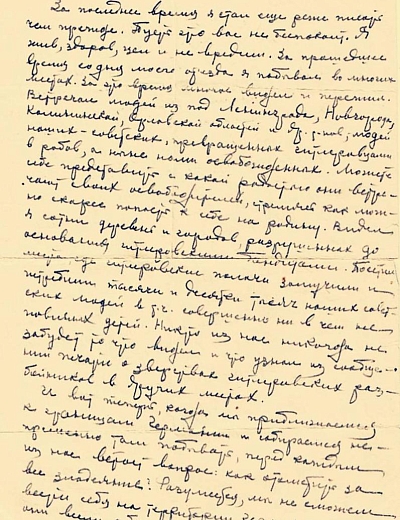 За последнее время я стал еще реже писать
чем прежде. Пусть это вас не беспокоит. Я
жив, здоров, цел и не вредим. За прошедшее
время со дня моего отъезда я побывал во многих
местах. За это время многое видел и пережил.
Встречал людей из под Ленинграда, Новгорода,
Калининской, Орловской областей и др. р-нов, людей
наших - советских, превращенных гитлеровцами
в рабов, а ныне нами освобожденных. Можете
себе представить с какой радостью они встре-
чают своих освободителей, стремясь как мож-
но скорее попасть к себе на родину. Видел
я сотни деревень и городов, разрушенных до
основания гитлеровскими бандитами. Посетил
места где гитлеровские палачи замучили и
истребили тысячи и десятки тысяч наших совет-
ских людей в т.ч. совершенно ни в чем не
повинных детей. Никто из нас никогда не
забудет то что видел и что узнал из сообще-
ний печати о зверствах гитлеровских раз-
бойников в других местах.
И вот теперь, когда мы приближаемся
к границам Германии и собираемся не-
пременно там побывать, перед каждым
из нас встает вопрос: как отомстить за
все злодеяния? Разумеется, мы не сможем
вести себя на территории
они